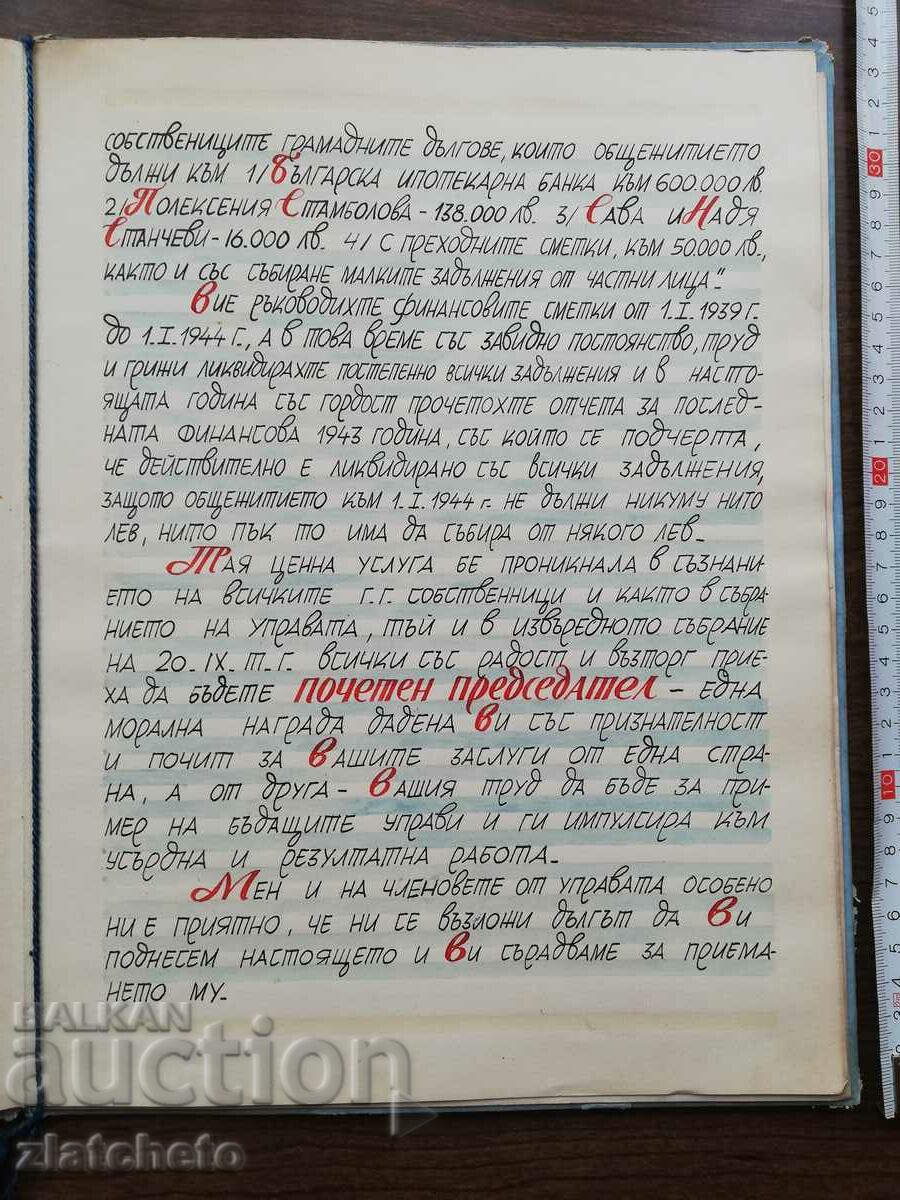 собствениците грамадните дългове, които общежитието
дължи към 1/ Българска ипотекарна банка към 600.000 лв.
2/ Полексения Стамболова - 138.000 лв. 3/ Сава и Надя
Станчеви - 16.000 лв. 4/ с преходните сметки, към 50.000 лв.,
както и със събиране малките задължения от частни лица"_
Вие ръководихте финансовите сметки от 1.I.1939 г.
до 1.I.1944 г., а в това време със завидно постоянство, труд
и грижи ликвидирахте постепенно всички задължения и в насто-
ящата година със гордост прочетохте отчета за послед-
ната финансова 1943 година, със който се подчерта,
че действително е ликвидирано със всички задължения,
защото общежитието към 1.I.1944 г. не дължи никуму нито
лев, нито пък то има да събира от някого лев_
Тая ценна услуга бе проникнала в съзнани
ето на всичките г.г. собственници и както в събра
нието на управата, тъй и в извъредното събрание
на 20_IX_т_г_ всички със радост и възторг прие-
ха да бъдете почетен председател - една
морална награда дадена Ви със признателност
и почит за Вашите заслуги от една стра-
на, а от друга - Вашия труд да бъде за при-
мер на бъдащите управи и ги импулсира към
усърдна и резултатна работа_
Мен и на членовете от управата особено
ни е приятно, че ни се възложи дългът да Ви
поднесем настоящето и Ви сърадваме за приема-
нето му_
BALKAN
auction
zlatcheto